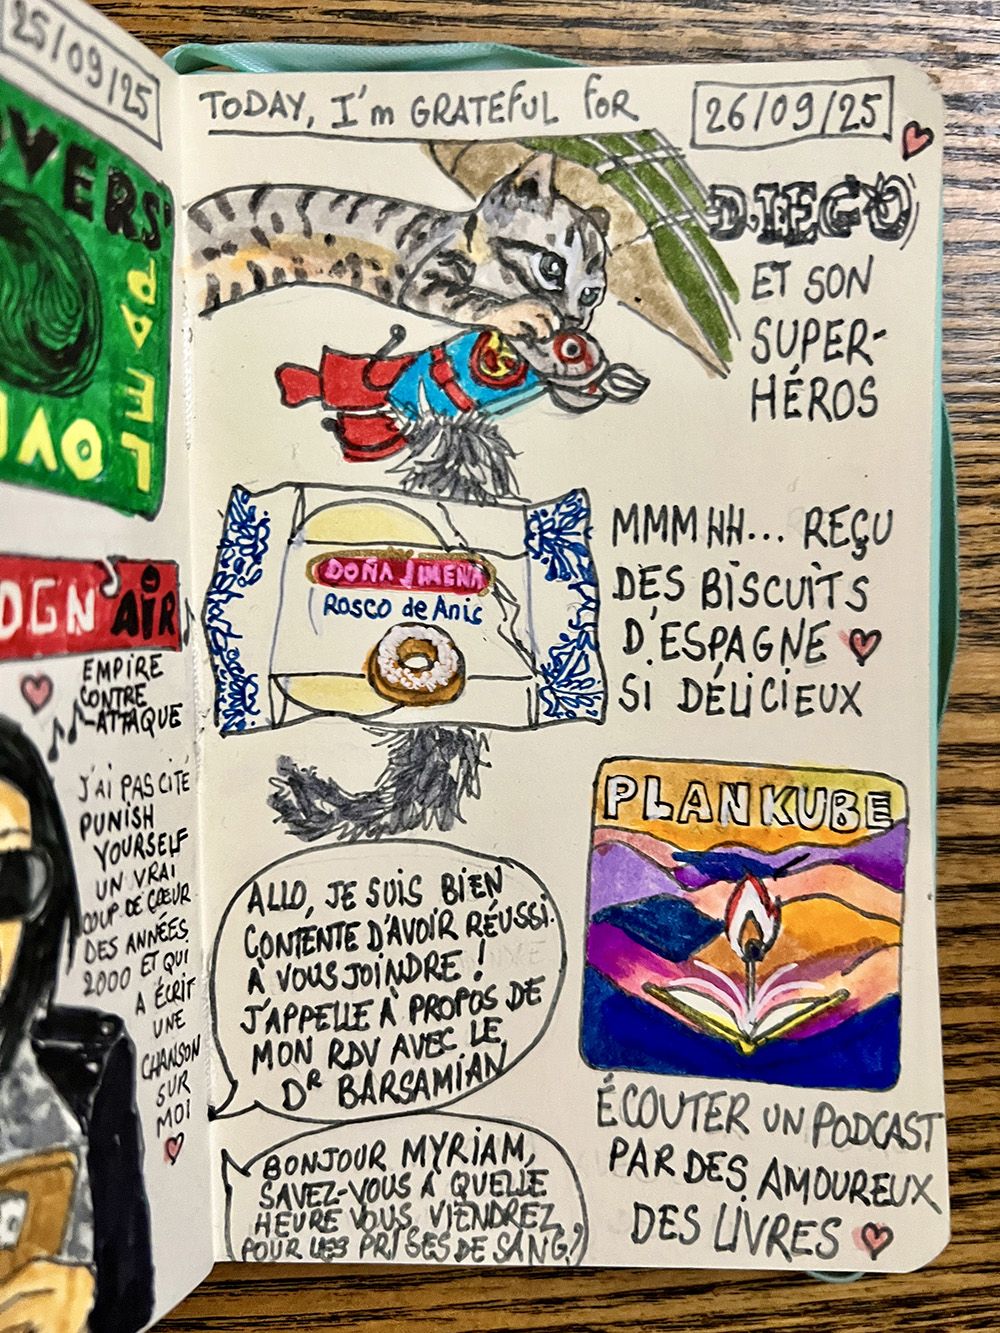 25/09/25
VERS'
PAMEL
DGN'AIR
EMPIRE
CONTRE
-ATTAQUE
J'AI PAS CITÉ
PUNISH
YOURSELF
UN VRAI
COUP DE CŒUR
DES ANNÉES
2000 ET QUI
A ÉCRIT
UNE
CHANSON
SUR
MOI
TODAY, I'm GRATEFUL FOR
26/09/25
DIEGO
ET SON
SUPER-
HÉROS
DOÑA JIMENA
Rosco de Anís
MMMHH... REÇU
DES BISCUITS
D'ESPAGNE
SI DÉLICIEUX
PLANKUBE
ÉCOUTER UN PODCAST
PAR DES AMOUREUX
DES LIVRES
ALLO, JE SUIS BIEN
CONTENTE D'AVOIR RÉUSSI
À VOUS JOINDRE !
J'APPELLE À PROPOS DE
MON RDV AVEC LE
Dr BARSAMIAN
BONJOUR MYRIAM,
SAVEZ-VOUS À QUELLE
HEURE VOUS VIENDREZ
POUR LES PRISES DE SANG?